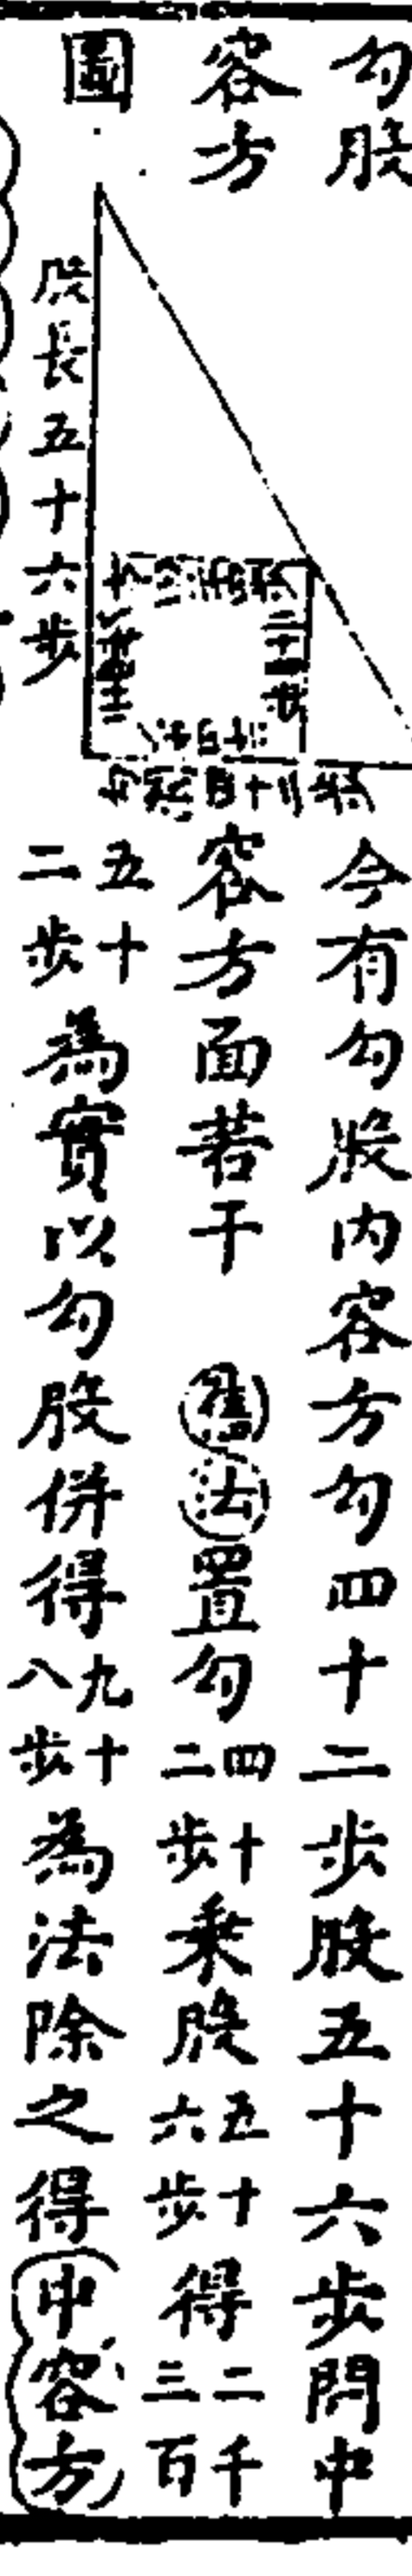 勾股
容方
圖
股長五十六步
今有勾股内容方勾四十二步股五十六步問中
容方面若干 舊法置勾四十二步乘股五十六步得二千三百
五十二步為實以勾股併得九十八步為法除之得中容方